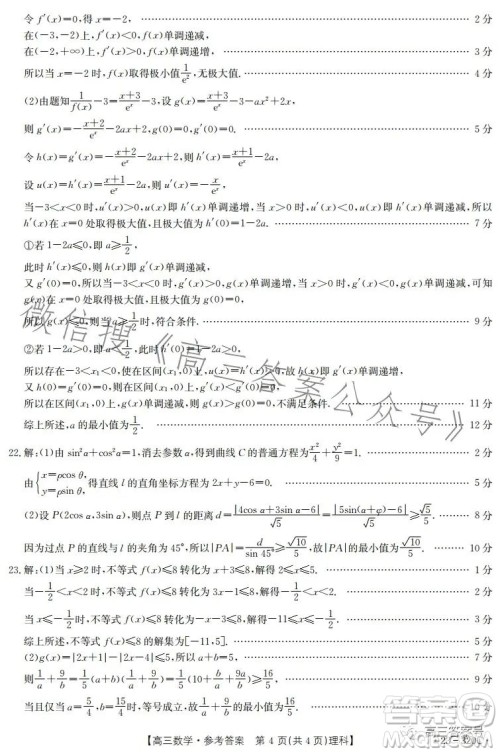 令 f′(x)=0,得 x=−2, 2分
在(−3,−2)上,f′(x)<0,f(x)单调递减,
在(−2,+∞)上,f′(x)>0,f(x)单调递增, 3分
所以当 x=−2 时,f(x)取得极小值 1/e²,无极大值. 4分
(2)由题知 1/f(x) −3= (x+3)/eˣ −3,设 g(x)= (x+3)/eˣ −3−ax²+2x,
则 g′(x)=− (x+2)/eˣ −2ax+2,g(0)=0,g′(0)=0. 5分
令 h(x)=g′(x)=− (x+2)/eˣ −2ax+2,则 h′(x)= (x+1)/eˣ −2a,
设 u(x)=h′(x)= (x+1)/eˣ −2a,则 u′(x)=− x/eˣ.
当−3<x<0 时,u′(x)>0,u(x)即 h′(x)单调递增,当 x>0 时,u′(x)<0,u(x)即 h′(x)单调递减,所以 h′(x)在 x=0 处取得极大值,且极大值为 h′(0)=1−2a. 7分
①若 1−2a≤0,即 a≥ 1/2,
此时 h′(x)≤0,所以 g′(x)单调递减,
又 g′(0)=0,所以当−3<x<0 时,g′(x)>0,g(x)单调递增,当 x>0 时,g′(x)<0,g(x)单调递减,可知
g(x)在 x=0 处取得极大值,且极大值为 g(0)=0,
所以 g(x)≤0,则当 a≥ 1/2 时,符合条件. 9分
②若 1−2a>0,即 a< 1/2,此时 h′(0)=1−2a>0,
所以存在−3<x₁<0,使得在区间(x₁,0)上,h′(x)>0,则 g′(x)在区间(x₁,0)上单调递增,
又 h(0)=g′(0)=0,则在区间(x₁,0)上,g′(x)<0,则 g(x)单调递减,且 g(0)=0,
所以在区间(x₁,0)上,g(x)>g(0)=0,不满足条件. 11分
综上所述,a 的最小值为 1/2. 12分
22.解:(1)由 sin²α+cos²α=1,消去参数 α,得到曲线 C 的普通方程为 x²/4 + y²/9 =1. 2分
由{x=ρcos θ, y=ρsin θ, 得直线 l 的直角坐标方程为 2x+y−6=0. 5分
(2)设 P(2cos α,3sin α),则点 P 到 l 的距离 d= |4cos α+3sin α−6|/√5 = |5sin(α+φ)−6|/√5 ≥ √5/5. 8分
因为过点 P 的直线与 l 的夹角为 45°,所以|PA|= d/sin 45° ≥ √10/5,故|PA|的最小值为 √10/5. 10分
23.解:(1)当 x≥2 时,不等式 f(x)≤8 转化为 x+3≤8,解得 2≤x≤5. 1分
当− 1/2 <x<2 时,不等式 f(x)≤8 转化为 3x−1≤8,解得− 1/2 <x<2. 2分
当 x≤− 1/2 时,不等式 f(x)≤8 转化为−x−3≤8,解得−11≤x≤− 1/2. 3分
综上所述,不等式 f(x)≤8 的解集为[−11,5]. 5分
(2)g(x)=|2x+1|−|2x−4|≤5,所以 a+b=5, 7分
则 1/a + 9/b = 1/5 (a+b)( 1/a + 9/b )= 1/5 (10+ b/a + 9a/b )≥ 16/5. 9分
当且仅当 a= 5/4,b= 15/4 时,等号成立,故 1/a + 9/b 的最小值为 16/5. 10分
【高三数学·参考答案 第 4 页(共 4 页)理科】
微信搜《高三答案公众号》